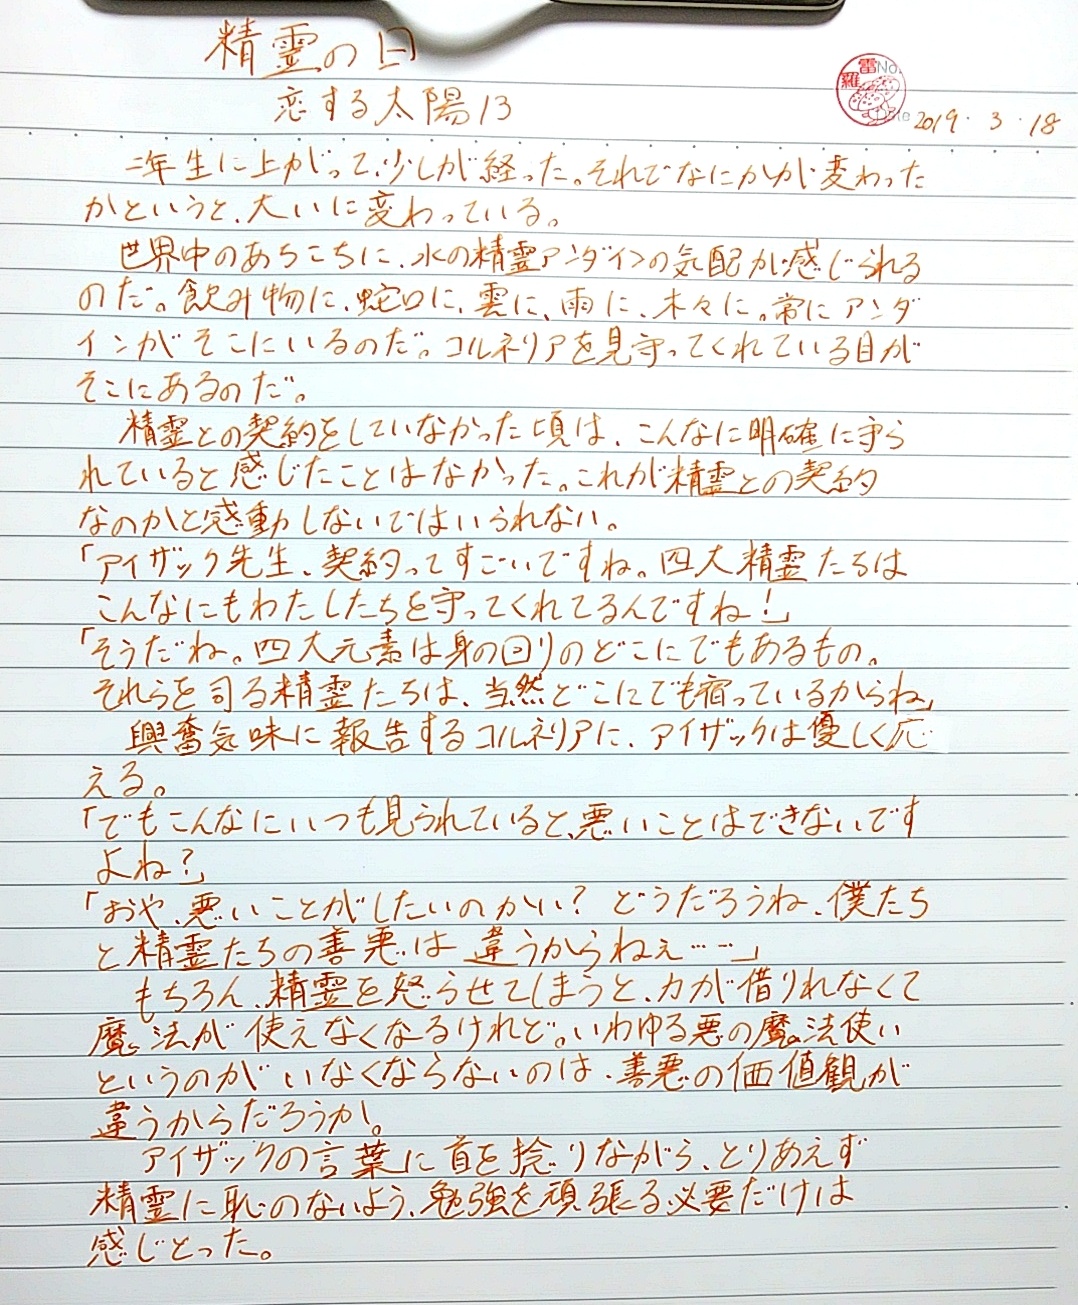 精霊の日
恋する太陽13
雷羅
No.
Date 2019.3.18
二年生に上がって、少しが経った。それでなにかが変わった
かというと、大いに変わっている。
世界中のあちこちに、水の精霊アンダインの気配が感じられる
のだ。飲み物に、蛇口に、雲に、雨に、木々に。常にアンダ
インがそこにいるのだ。コルネリアを見守ってくれている目が
そこにあるのだ。
精霊との契約をしていなかった頃は、こんなに明確に守ら
れていると感じたことはなかった。これが精霊との契約
なのかと感動しないではいられない。
「アイザック先生、契約ってすごいですね。四大精霊たちは
こんなにもわたしたちを守ってくれてるんですね！」
「そうだね。四大元素は身の回りのどこにでもあるもの。
それらを司る精霊たちは、当然どこにでも宿っているからね」
興奮気味に報告するコルネリアに、アイザックは優しく応
える。
「でもこんなにいつも見られていると、悪いことはできないです
よね？」
「おや、悪いことがしたいのかい？どうだろうね、僕たち
と精霊たちの善悪は違うからねぇ……」
もちろん、精霊を怒らせてしまうと、力が借りれなくて
魔法が使えなくなるけれど。いわゆる悪の魔法使い
というのがいなくならないのは、善悪の価値観が
違うからだろうか。
アイザックの言葉に首を捻りながら、とりあえず
精霊に恥のないよう、勉強を頑張る必要だけは
感じとった。